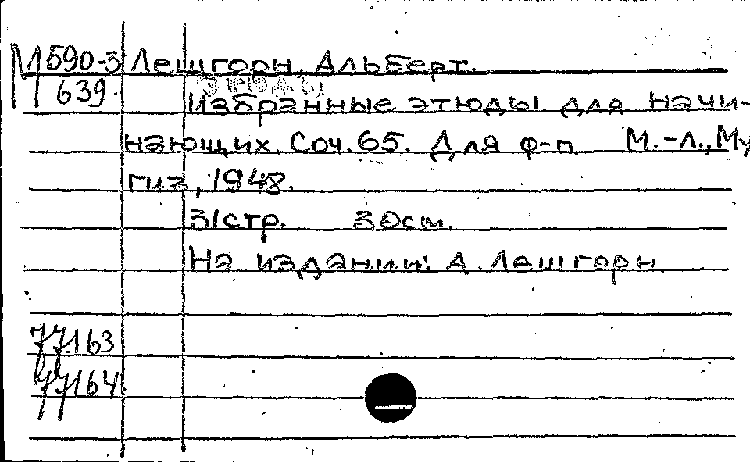 М 590-3 Лешгорн, Альберт.
639. Избранные этюды для начи-
нающих. Соч. 65. Для ф-п. М.-Л., Му
гиз, 1948.
31 стр. 30 см.
На издании: А. Лешгорн
77163
77164